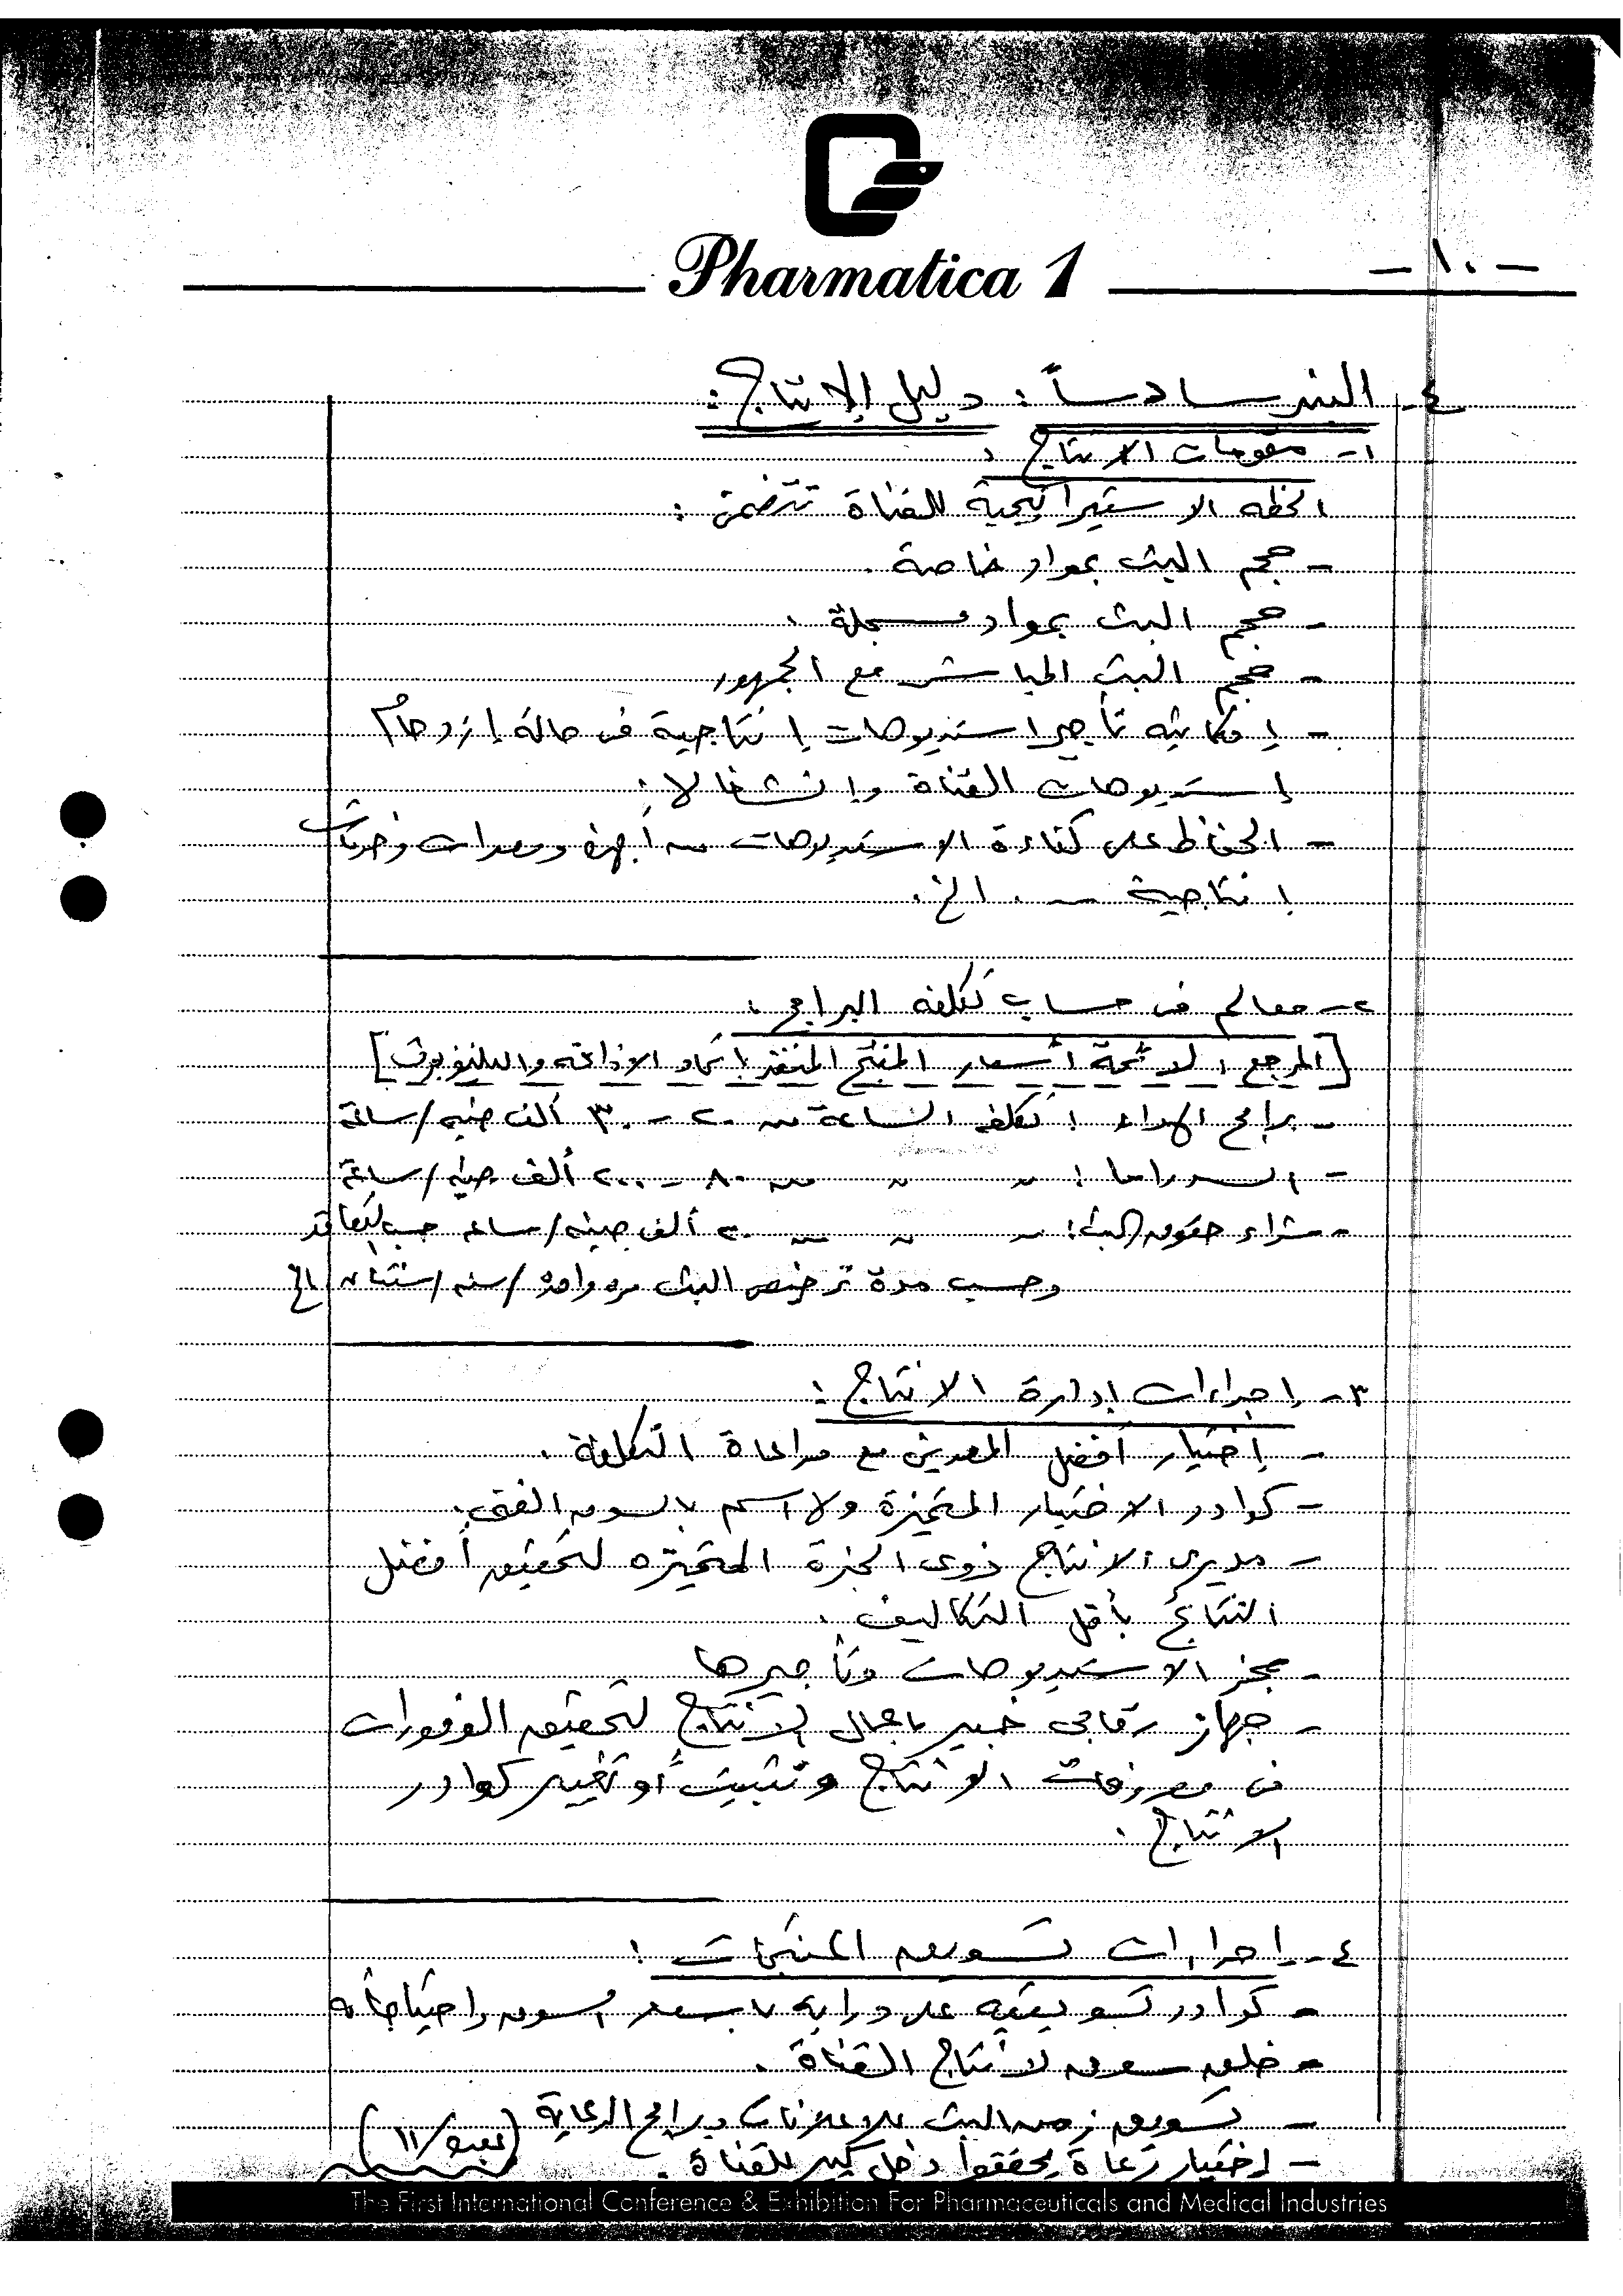 Pharmatica 1
- ١٠ -
٤- البند سادساً : دليل الإنتاج :
١- مقومات الانتاج :
الخطه الاستيراتيجية للقناة تتضمن :
- حجم البث بمواد خاصة .
- حجم البث بمواد مسجلة .
- حجم البث المباشر مع الجمهور
- إمكانيه تأجير استديوهات إنتاجية فى حالة إزدحام
إستديوهات القناة وإنشغالا
- الحفاظ على كفاءة الاستديوهات من أجهزه ومعدات وخدمات
إنتاجية ... الخ .
٢- معالم فى حساب تكلفه البرامج :
[المرجع : لائحة أسعار المنتج المنفذ بإتحاد الاذاعه والتليفزيون]
- برامج الهواء : تكلفه الساعة من ٢٠ - ٣٠ ألف جنيه/ساعة
- الدراما : ~ ~ من ٨٠ - ٢٠٠ ألف جنيه/ساعة
- شراء حقوق البث : ~ ~ من ٢٠ ألف جنيه/ساعه حسب التعاقد
وحسب مدة ترخيص البث مره واحدة/سنه/سنتان الخ
٣- إجراءات إدارة الانتاج :
- إختيار أفضل المعدين مع مراعاة التكلفة .
- كوادر الاختيار المتميزة ولا اسم بالسوق الفنى .
- مديرى الانتاج ذوى الخبرة المتميزه لتحقيق أفضل
النتائج بأقل التكاليف .
- حجز الاستديوهات وتأجيرها
- جهاز رقابى خبير باعمال الانتاج لتحقيق الوفورات
فى مصروفات الانتاج وتثبيت أو تغيير كوادر
الانتاج .
٤- إجراءات تسويق المنتجات :
- كوادر تسويقيه على درايه بأسعار السوق واحتياجاته
- خلق سوق لانتاج القناة .
- تسويق زمن البث للاعلانات وبرامج الرعاية
- إختيار رعاة يحققوا دخل كبير للقناة .
(يتبع/١١)
The First International Conference & Exhibition For Pharmaceuticals and Medical Industries